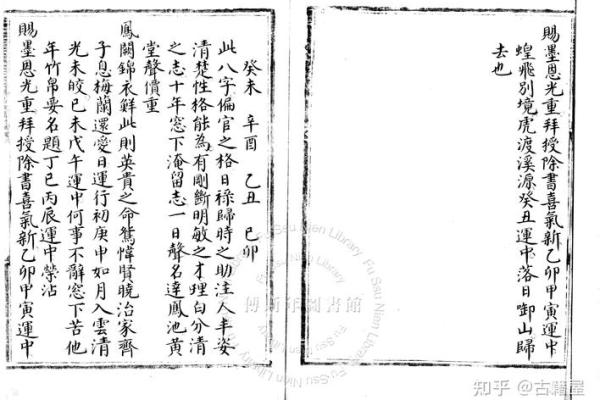 賜墨恩光重拜授除書喜氣新乙卯甲寅運中
蝗飛別境虎渡溪源癸丑運中落日啣山歸
去也
癸未 辛酉 乙丑 己卯
此八字偏官之格日祿歸時之助注人丰姿
清楚性格能為有剛斷明敏之才理白分清
之志十年窓下淹留志一日聲名達鳳池黃
堂聲價重
鳳闕錦衣鮮此則英貴之命鴛幃賢曉治家齊
子息梅蘭還愛日運行初庚申如月入雲清
光未皎已未戊午運中何事不辭窓下苦他
年竹帛要名題丁巳丙辰運中榮沾
賜墨恩光重拜授除書喜氣新乙卯甲寅運中
傅斯年圖書館
Fu Ssu Nien Library
知乎 @古籍屋